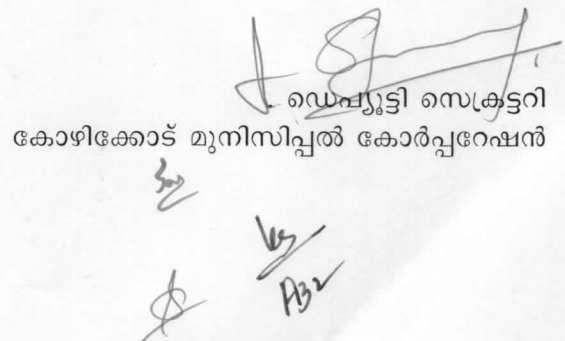 ഡെപ്യൂട്ടി സെക്രട്ടറി
കോഴിക്കോട് മുനിസിപ്പൽ കോർപ്പറേഷൻ
A32